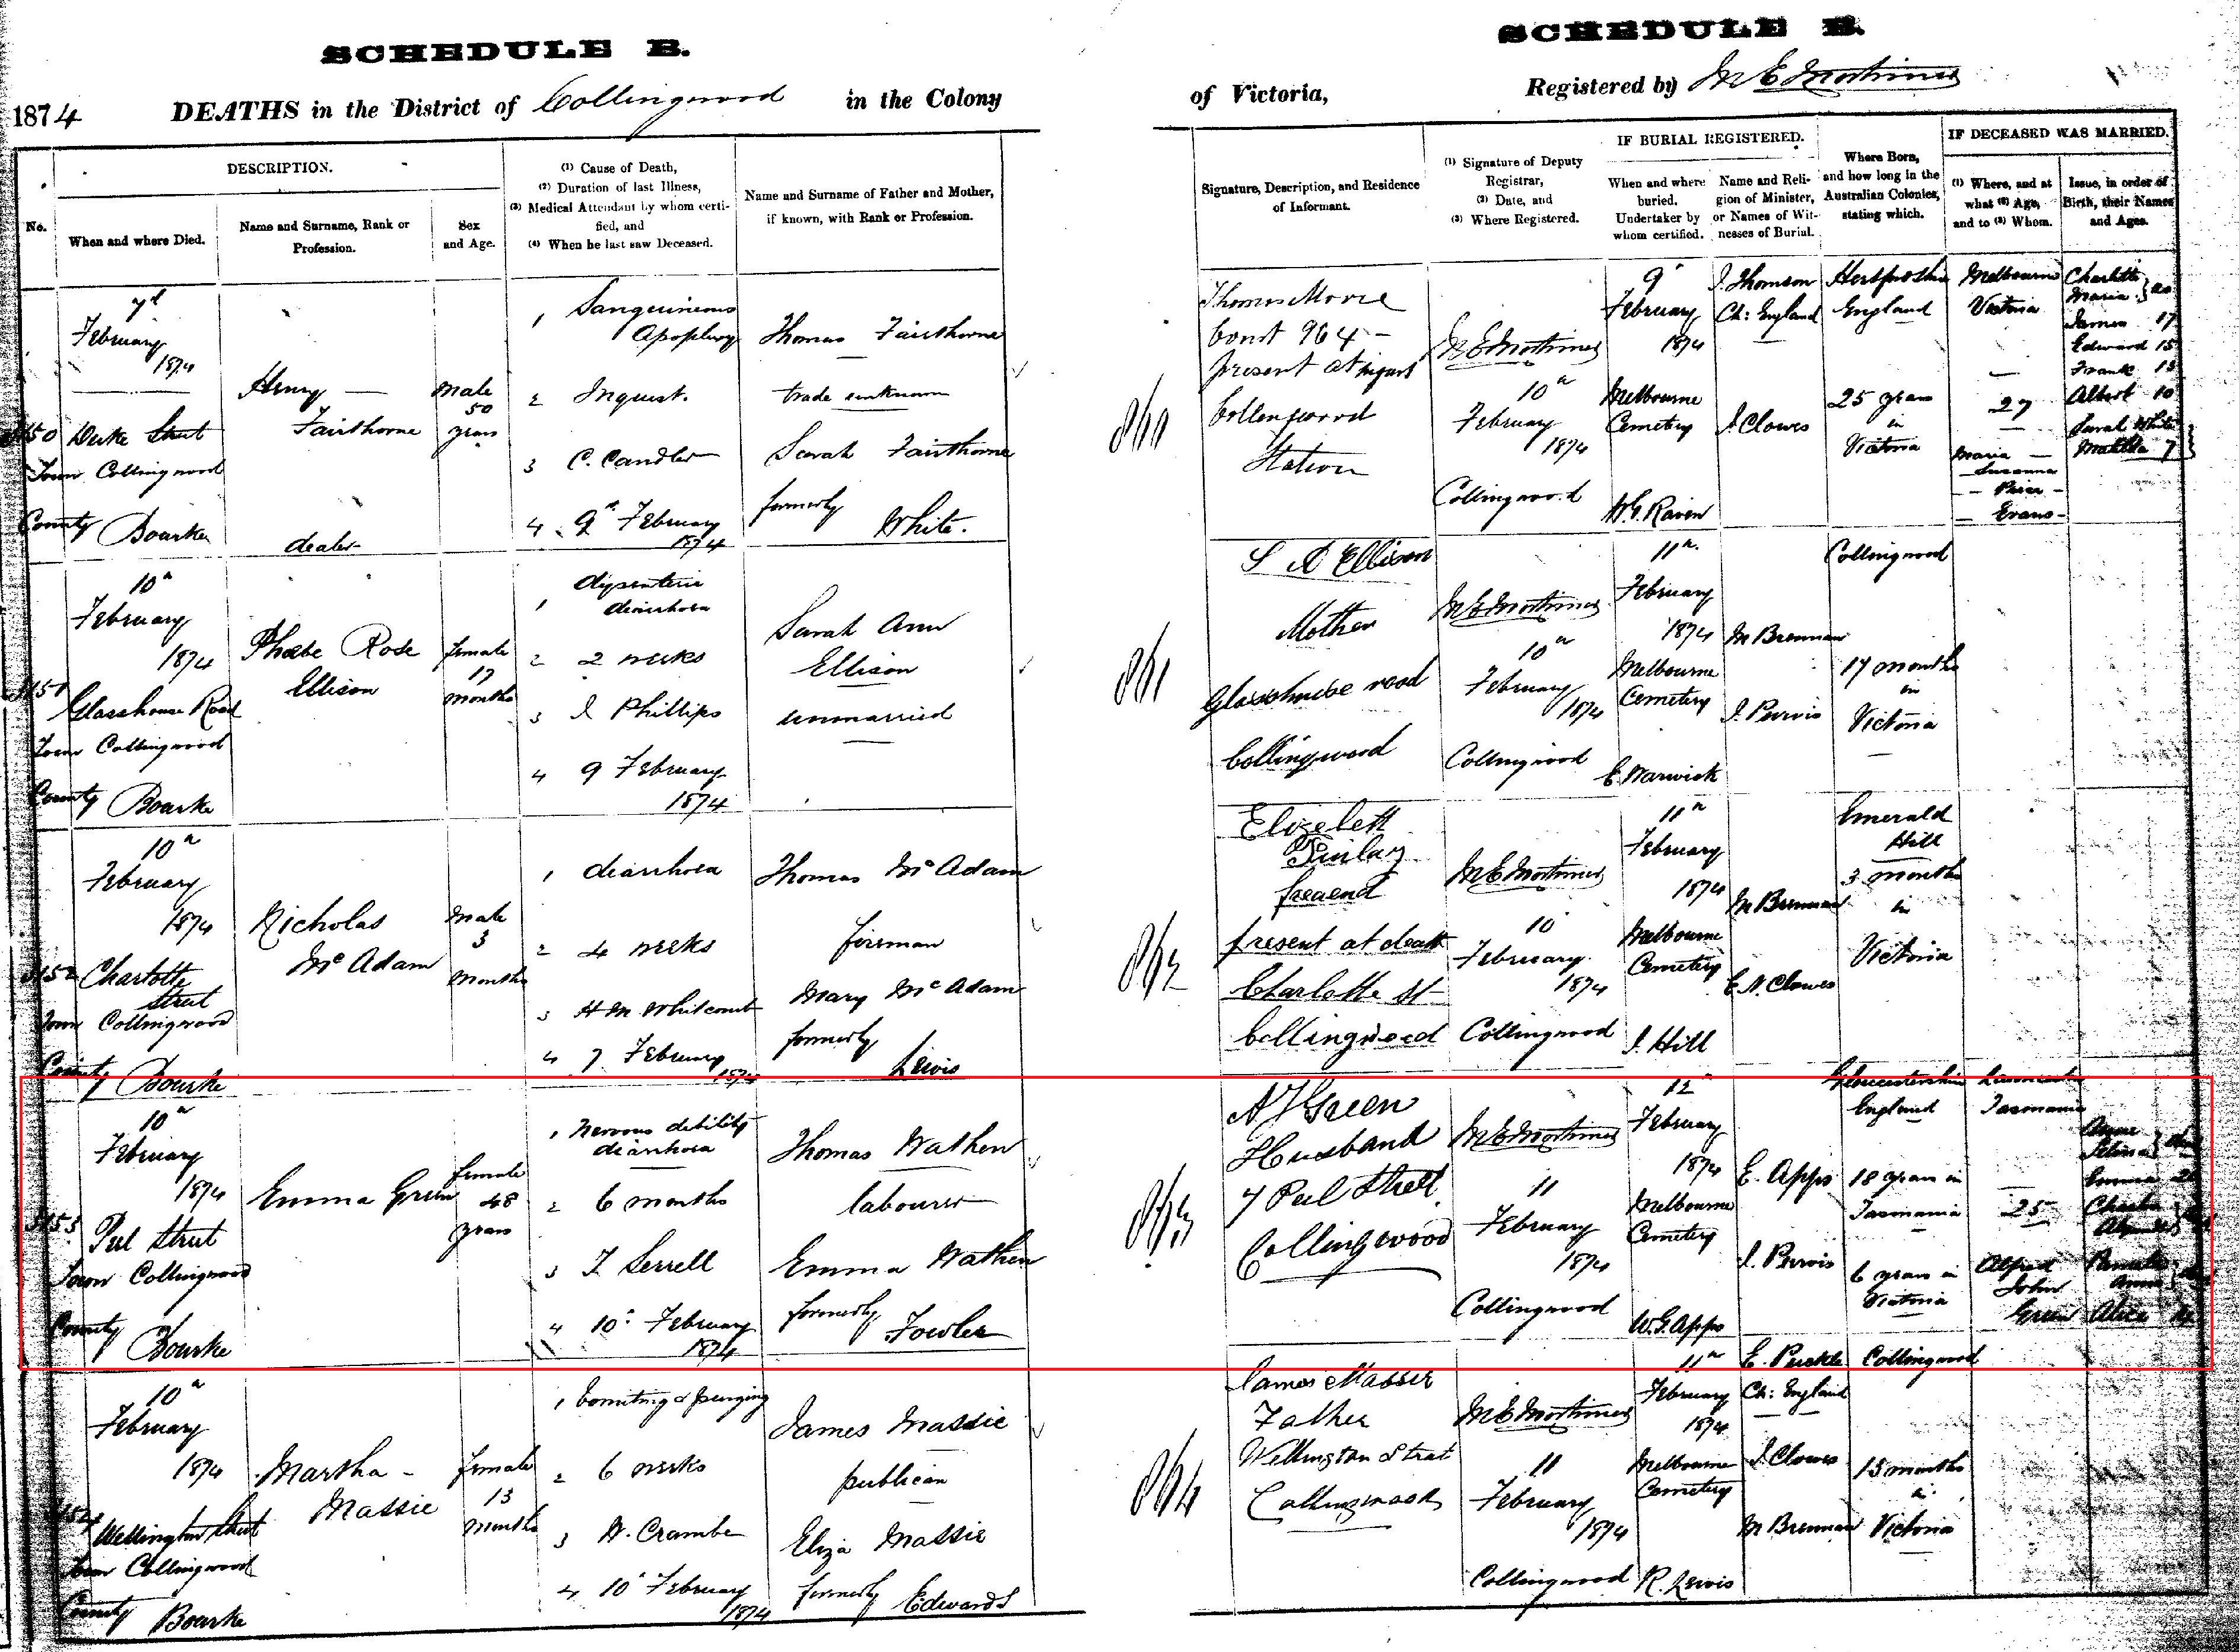 SCHEDULE B.
1874 DEATHS in the District of Collingwood in the Colony
No.
DESCRIPTION.
When and where Died.
Name and Surname, Rank or
Profession.
Sex
and Age.
(1) Cause of Death,
(2) Duration of last Illness,
(3) Medical Attendant by whom certi-
fied, and
(4) When he last saw Deceased.
Name and Surname of Father and Mother,
if known, with Rank or Profession.
7th
February
1874
Duke Street
Town Collingwood
County Bourke
Henry
Fairthorne
dealer
Male
50
years
1 Sanguineous
Apoplexy
2 Inquest.
3 C. Candler
4 9th February
1874
Thomas Fairthorne
trade unknown
Sarah Fairthorne
formerly
White.
10th
February
1874
Glasshouse Road
Town Collingwood
County Bourke
Phoebe Rose
Ellison
female
17
months
1 dysenteric
diarrhoea
2 2 weeks
3 Phillips
4 9 February
1874
Sarah Ann
Ellison
unmarried
10th
February
1874
Charlotte
Street
Town Collingwood
County Bourke
Nicholas
McAdam
Male
3
months
1 diarrhoea
2 4 weeks
3 H M Whitcomb
4 7 February
1874
Thomas McAdam
fireman
Mary McAdam
formerly
Lewis
10th
February
1874
Peel Street
Town Collingwood
County
Bourke
Emma Green
female
48
years
1 Nervous debility
diarrhoea
2 6 months
3 T. Serrell
4 10th February
1874
Thomas Wathen
labourer
Emma Wathen
formerly
Fowler
10th
February
1874
Wellington Street
Town Collingwood
County
Bourke
Martha
Massie
female
13
months
1 Vomiting & purging
2 6 weeks
3 W. Crambe
4 10th February
1874
James Massie
publican
Eliza Massie
formerly Edwards
SCHEDULE B.
of Victoria, Registered by M E Mortimer
Signature, Description, and Residence
of Informant.
(1) Signature of Deputy
Registrar,
(2) Date, and
(3) Where Registered.
IF BURIAL REGISTERED.
When and where
buried.
Undertaker by
whom certified.
Name and Reli-
gion of Minister,
or Names of Wit-
nesses of Burial.
Where Born,
and how long in the
Australian Colonies,
stating which.
IF DECEASED WAS MARRIED.
(1) Where, and at
what (2) Age,
and to (3) Whom.
Issue, in order of
Birth, their Names
and Ages.
Thomas Moore
Const 964
present at inquest
Collingwood
Station
M E Mortimer
10th
February
1874
Collingwood
9th
February
1874
Melbourne
Cemetery
W.G. Raven
J. Thomson
Ch: England
J. Clowes
Hertfordshire
England
25 years
in
Victoria
Melbourne
Victoria
27
Maria
Susanna
Price
Evans
Charlotte
Maria
James 17
Edward 15
Frank 13
Albert 10
Sarah White
Matilda 7
S A Ellison
Mother
Glasshouse road
Collingwood
M E Mortimer
10th
February
1874
Collingwood
11th
February
1874
Melbourne
Cemetery
E. Warwick
M Brennan
J. Purvis
Collingwood
17 months
in
Victoria
Elizabeth
Finlay
freaend
present at death
Charlotte St
Collingwood
M E Mortimer
10
February
1874
Collingwood
11th
February
1874
Melbourne
Cemetery
J. Hill
M Brennan
E. N. Clowes
Emerald
Hill
3 months
in
Victoria
A J Green
Husband
7 Peel Street
Collingwood
M E Mortimer
11
February
1874
Collingwood
12
February
1874
Melbourne
Cemetery
W.G. Apps
E. Apps
J. Purvis
Gloucestershire
England
18 years in
Tasmania
6 years in
Victoria
Tasmania
25
Alfred
John
Green
Emma
Alice
James Massie
Father
Wellington Street
Collingwood
M E Mortimer
11
February
1874
Collingwood
11th
February
1874
Melbourne
Cemetery
R. Lewis
E. Puckle
Ch: England
J. Clowes
M Brennan
Collingwood
13 months
in
Victoria